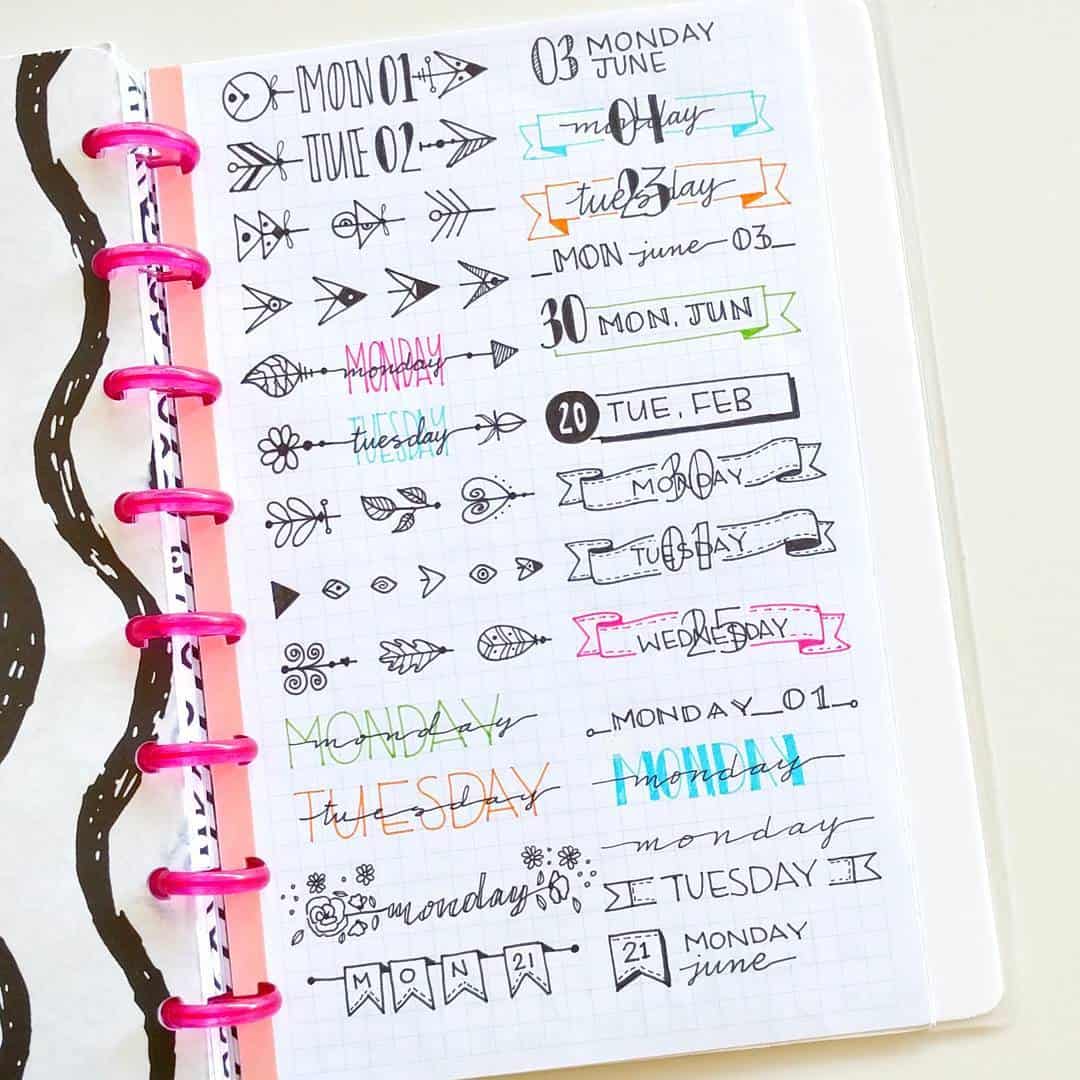 MON 01
TUE 02
MONDAY
monday
TUESDAY
tuesday
MONDAY
monday
TUESDAY
tuesday
monday
MON 21
03 MONDAY
JUNE
monday
04
tuesday
23
MON june 03
30 MON, JUN
20 TUE, FEB
MONDAY
30
TUESDAY
01
WEDNESDAY
25
MONDAY_01
MONDAY
monday
monday
TUESDAY
21 MONDAY
june